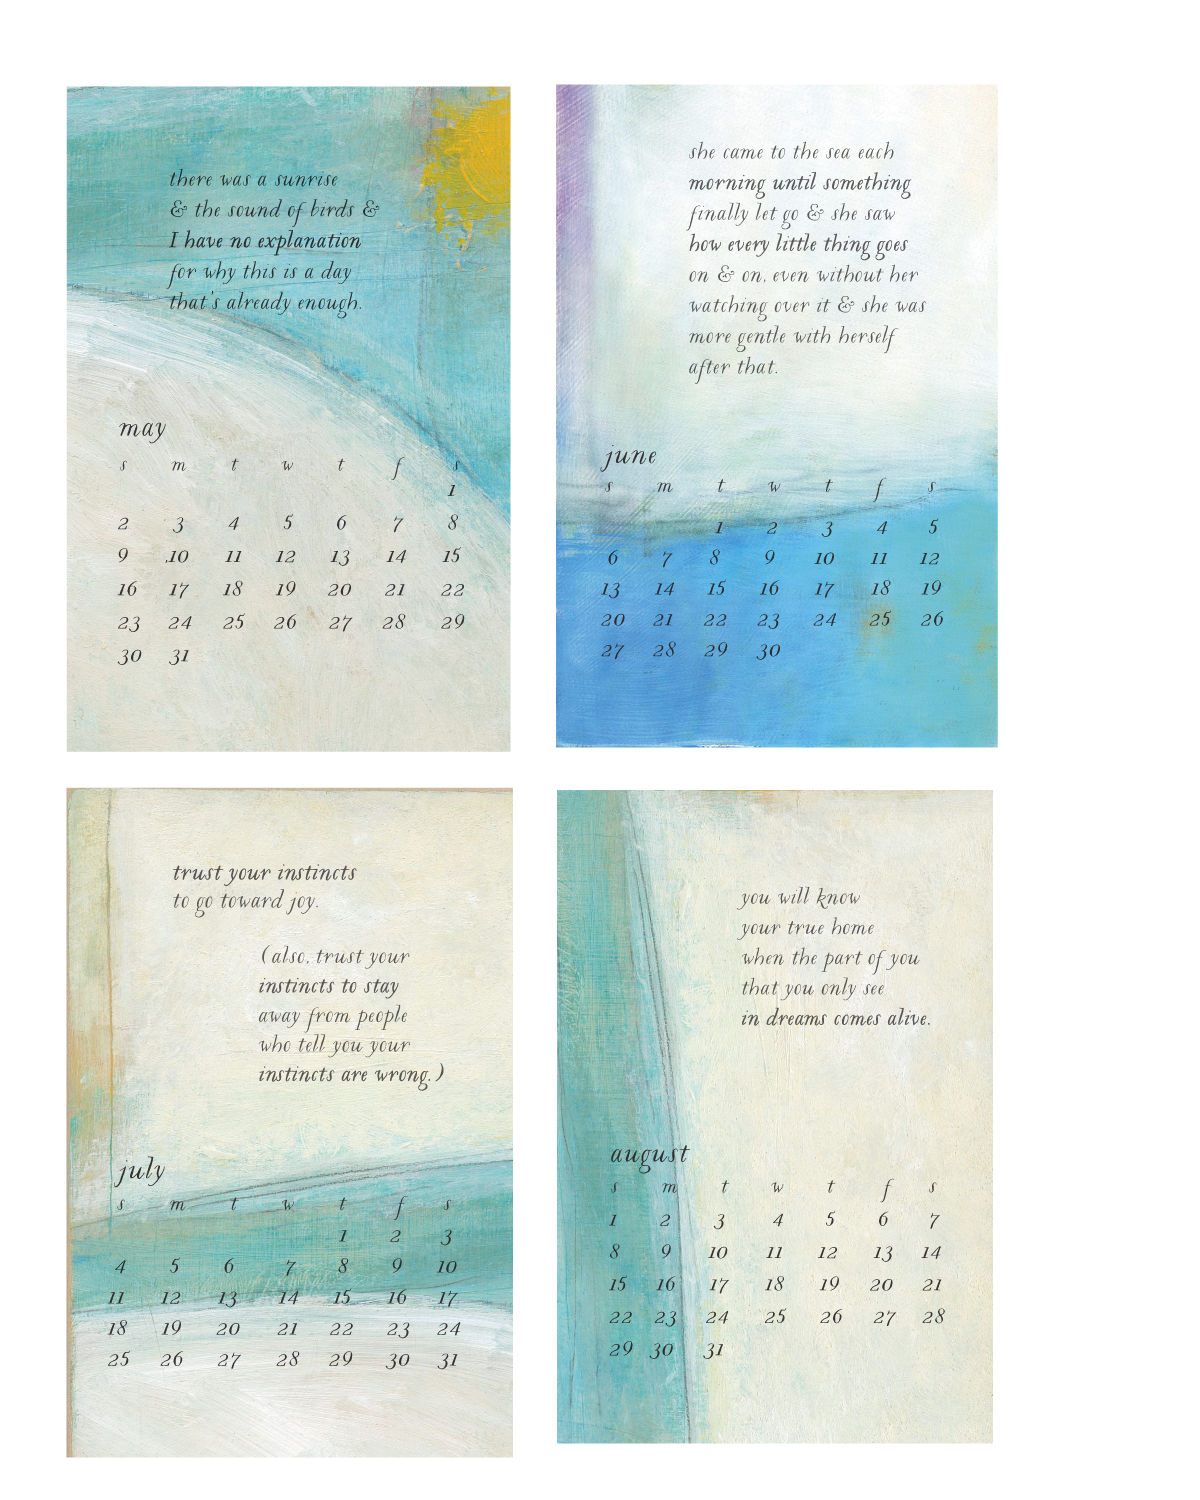 there was a sunrise
& the sound of birds &
I have no explanation
for why this is a day
that's already enough.
may
s m t w t f s
1
2 3 4 5 6 7 8
9 10 11 12 13 14 15
16 17 18 19 20 21 22
23 24 25 26 27 28 29
30 31
she came to the sea each
morning until something
finally let go & she saw
how every little thing goes
on & on, even without her
watching over it & she was
more gentle with herself
after that.
june
s m t w t f s
1 2 3 4 5
6 7 8 9 10 11 12
13 14 15 16 17 18 19
20 21 22 23 24 25 26
27 28 29 30
trust your instincts
to go toward joy.
(also, trust your
instincts to stay
away from people
who tell you your
instincts are wrong.)
july
s m t w t f s
1 2 3
4 5 6 7 8 9 10
11 12 13 14 15 16 17
18 19 20 21 22 23 24
25 26 27 28 29 30 31
you will know
your true home
when the part of you
that you only see
in dreams comes alive.
august
s m t w t f s
1 2 3 4 5 6 7
8 9 10 11 12 13 14
15 16 17 18 19 20 21
22 23 24 25 26 27 28
29 30 31